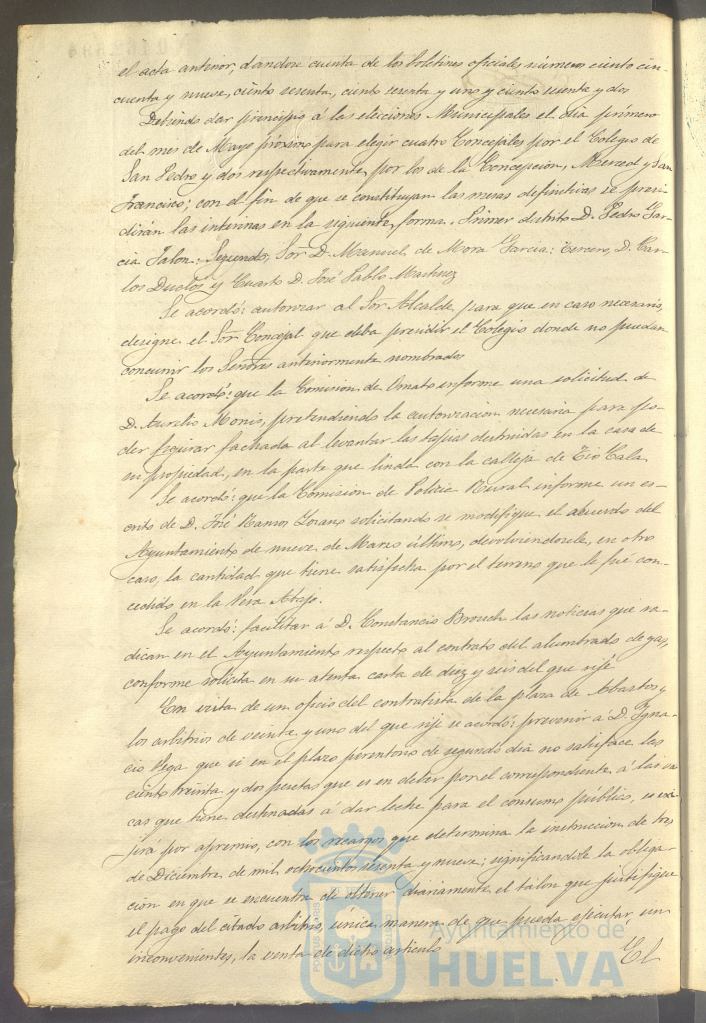 el acta anterior, dandose cuenta de los boletines oficiales números ciento cin-
cuenta y nueve, ciento sesenta, ciento sesenta y uno y ciento sesenta y dos
Debiendo dar principio á las elecciones Municipales el dia primero
del mes de Mayo próximo para elegir cuatro Concejales por el Colegio de
San Pedro y dos respectivamente, por los de la Concepcion, Merced y San
Francisco; con el fin de que se constituyan las mesas definitivas se presi-
dirán las interinas en la siguiente forma. Primer distrito D. Pedro Gar-
cia Jalon: Segundo, Sor D. Manuel de Mora Garcia: tercero, D. Car-
los Duclós y Cuarto D. José Pablo Martinez
Se acordó: autorizar al Sor Alcalde, para que en caso necesario,
designe el Sor Concejal que deba presidir el Colegio donde no puedan
concurrir los Señores anteriormente nombrados
Se acordó: que la Comision de Ornato informe una solicitud de
D. Aurelio Monis, pretendiendo la autorizacion necesaria para po-
der figurar fachada al levantar las tapias destruidas en la casa de
su propiedad, en la parte que linda con la calleja de Tio Cala
Se acordó: que la Comision de Policia Rural informe un es-
crito de D. José Ramos Lozano solicitando se modifique el acuerdo del
Ayuntamiento de nueve de Marzo último, devolviendosele, en otro
caso, la cantidad que tiene satisfecha por el terreno que le fué con-
cedido en la Vera Abajo.
Se acordó: facilitar á D. Constancio Brouch las noticias que ra-
dican en el Ayuntamiento respecto al contrato del alumbrado de gas,
conforme solicita en su atenta carta de diez y seis del que rije
En vista de un oficio del contratista de la plaza de Abastos y
los arbitrios de veinte y uno del que rije se acordó: prevenir á D. Ygna-
cio Vega que si en el plazo perentorio de segundo dia no satisface las
ciento treinta y dos pesetas que es en deber por el correspondiente á las va
cas que tiene destinadas á dar leche para el consumo público, se exi-
jirá por apremio, con los recargos que determina la instruccion de tres
de Diciembre de mil ochocientos sesenta y nueve; significandole la obliga-
cion en que se encuentra de obtener diariamente el talon que justifique
el pago del citado arbitrio, única manera de que pueda ejecutar, sin
inconvenientes, la venta de dicho articulo El
Ayuntamiento de
HUELVA